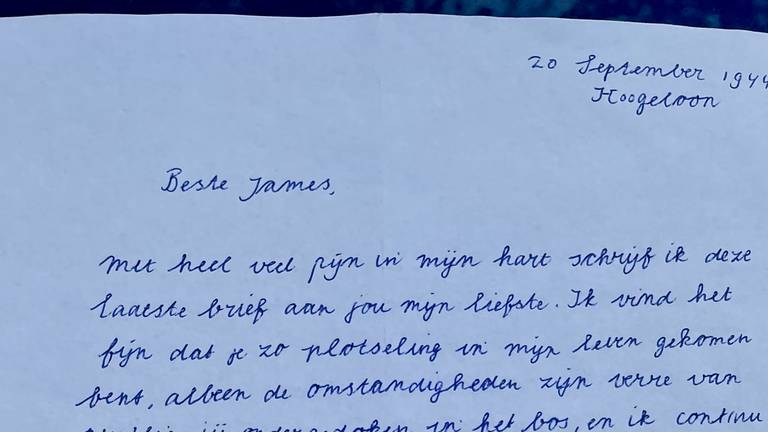 20 September 1944
Hoogeloon
Beste James,
Met heel veel pijn in mijn hart schrijf ik deze
laatste brief aan jou mijn liefste. Ik vind het
fijn dat je zo plotseling in mijn leven gekomen
bent, alleen de omstandigheden zijn verre van
jij ondergedoken in het bos, en ik continu